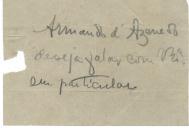 Armando d'Azevedo
deseja falar com V. Ex.
em particular